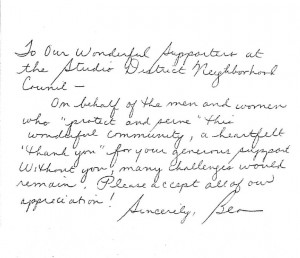 To Our Wonderful Supporters at
the Studio District Neighborhood
Council –
On behalf of the men and women
who "protect and serve" this
wonderful community, a heartfelt
"thank you" for your generous support
Without you, many challenges would
remain. Please accept all of our
appreciation!
Sincerely,